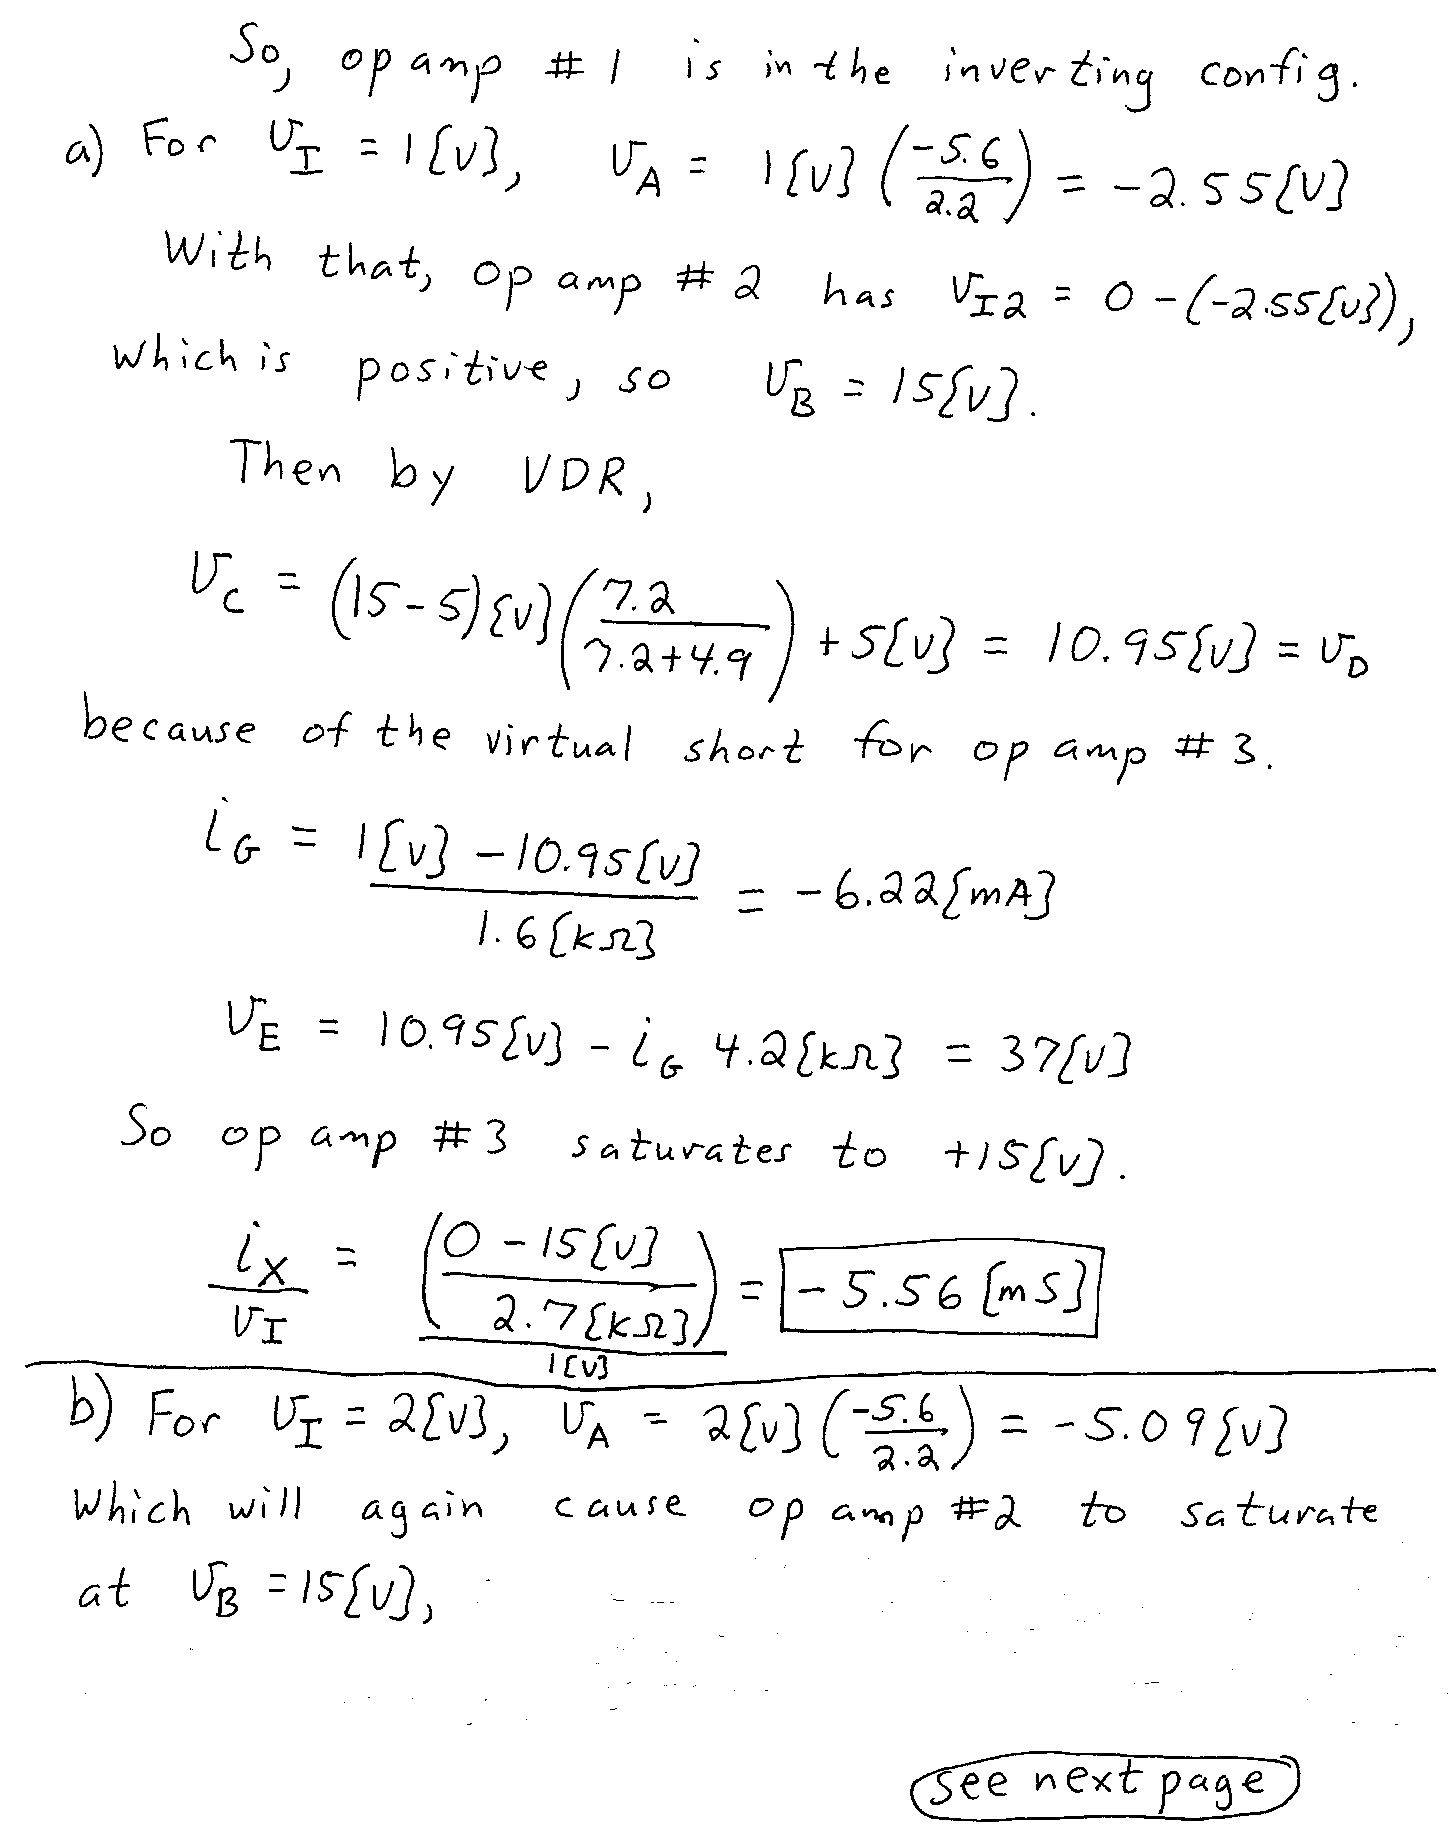 So, op amp #1 is in the inverting config.
a) For v_I = 1{V}, v_A = 1{V} (-5.6/2.2) = -2.55{V}
With that, op amp #2 has v_I2 = 0 - (-2.55{V}),
which is positive, so v_B = 15{V}.
Then by VDR,
v_C = (15-5){V} (7.2/(7.2+4.9)) + 5{V} = 10.95{V} = v_D
because of the virtual short for op amp #3.
i_G = (1{V} - 10.95{V})/(1.6{kΩ}) = -6.22{mA}
v_E = 10.95{V} - i_G 4.2{kΩ} = 37{V}
So op amp #3 saturates to +15{V}.
i_X/v_I = ((0 - 15{V})/(2.7{kΩ}))/(1{V}) = -5.56 [mS]
b) For v_I = 2{V}, v_A = 2{V} (-5.6/2.2) = -5.09{V}
Which will again cause op amp #2 to saturate
at v_B = 15{V},
see next page